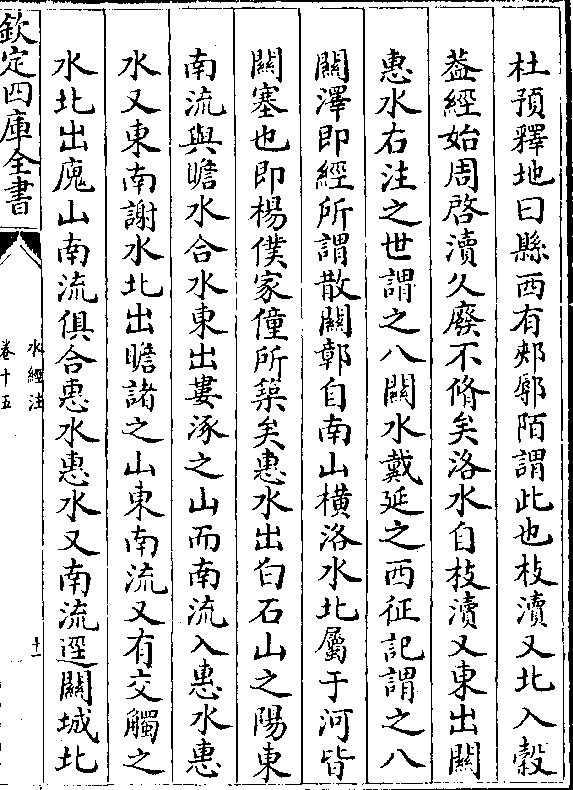 杜預釋地曰縣西有郟鄏陌謂此也枝瀆又北入穀
葢經始周啓瀆久廢不脩矣洛水自枝瀆又東出關
惠水右注之世謂之八關水戴延之西征記謂之八
關澤即經所謂散關鄣自南山橫洛水北屬于河皆
關塞也即楊僕家僮所築矣惠水出白石山之陽東
南流與瞻水合水東出婁涿之山而南流入惠水惠
水又東南謝水北出瞻諸之山東南流又有交觸之
水北出廆山南流俱合惠水惠水又南流逕關城北
欽定四庫全書
水經注
卷十五
十一